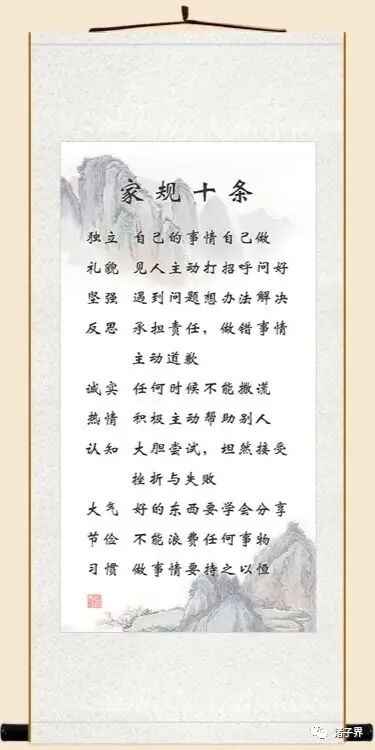 家规十条
独立 自己的事情自己做
礼貌 见人主动打招呼问好
坚强 遇到问题想办法解决
反思 承担责任，做错事情
主动道歉
诚实 任何时候不能撒谎
热情 积极主动帮助别人
认知 大胆尝试，坦然接受
挫折与失败
大气 好的东西要学会分享
节俭 不能浪费任何事物
习惯 做事情要持之以恒